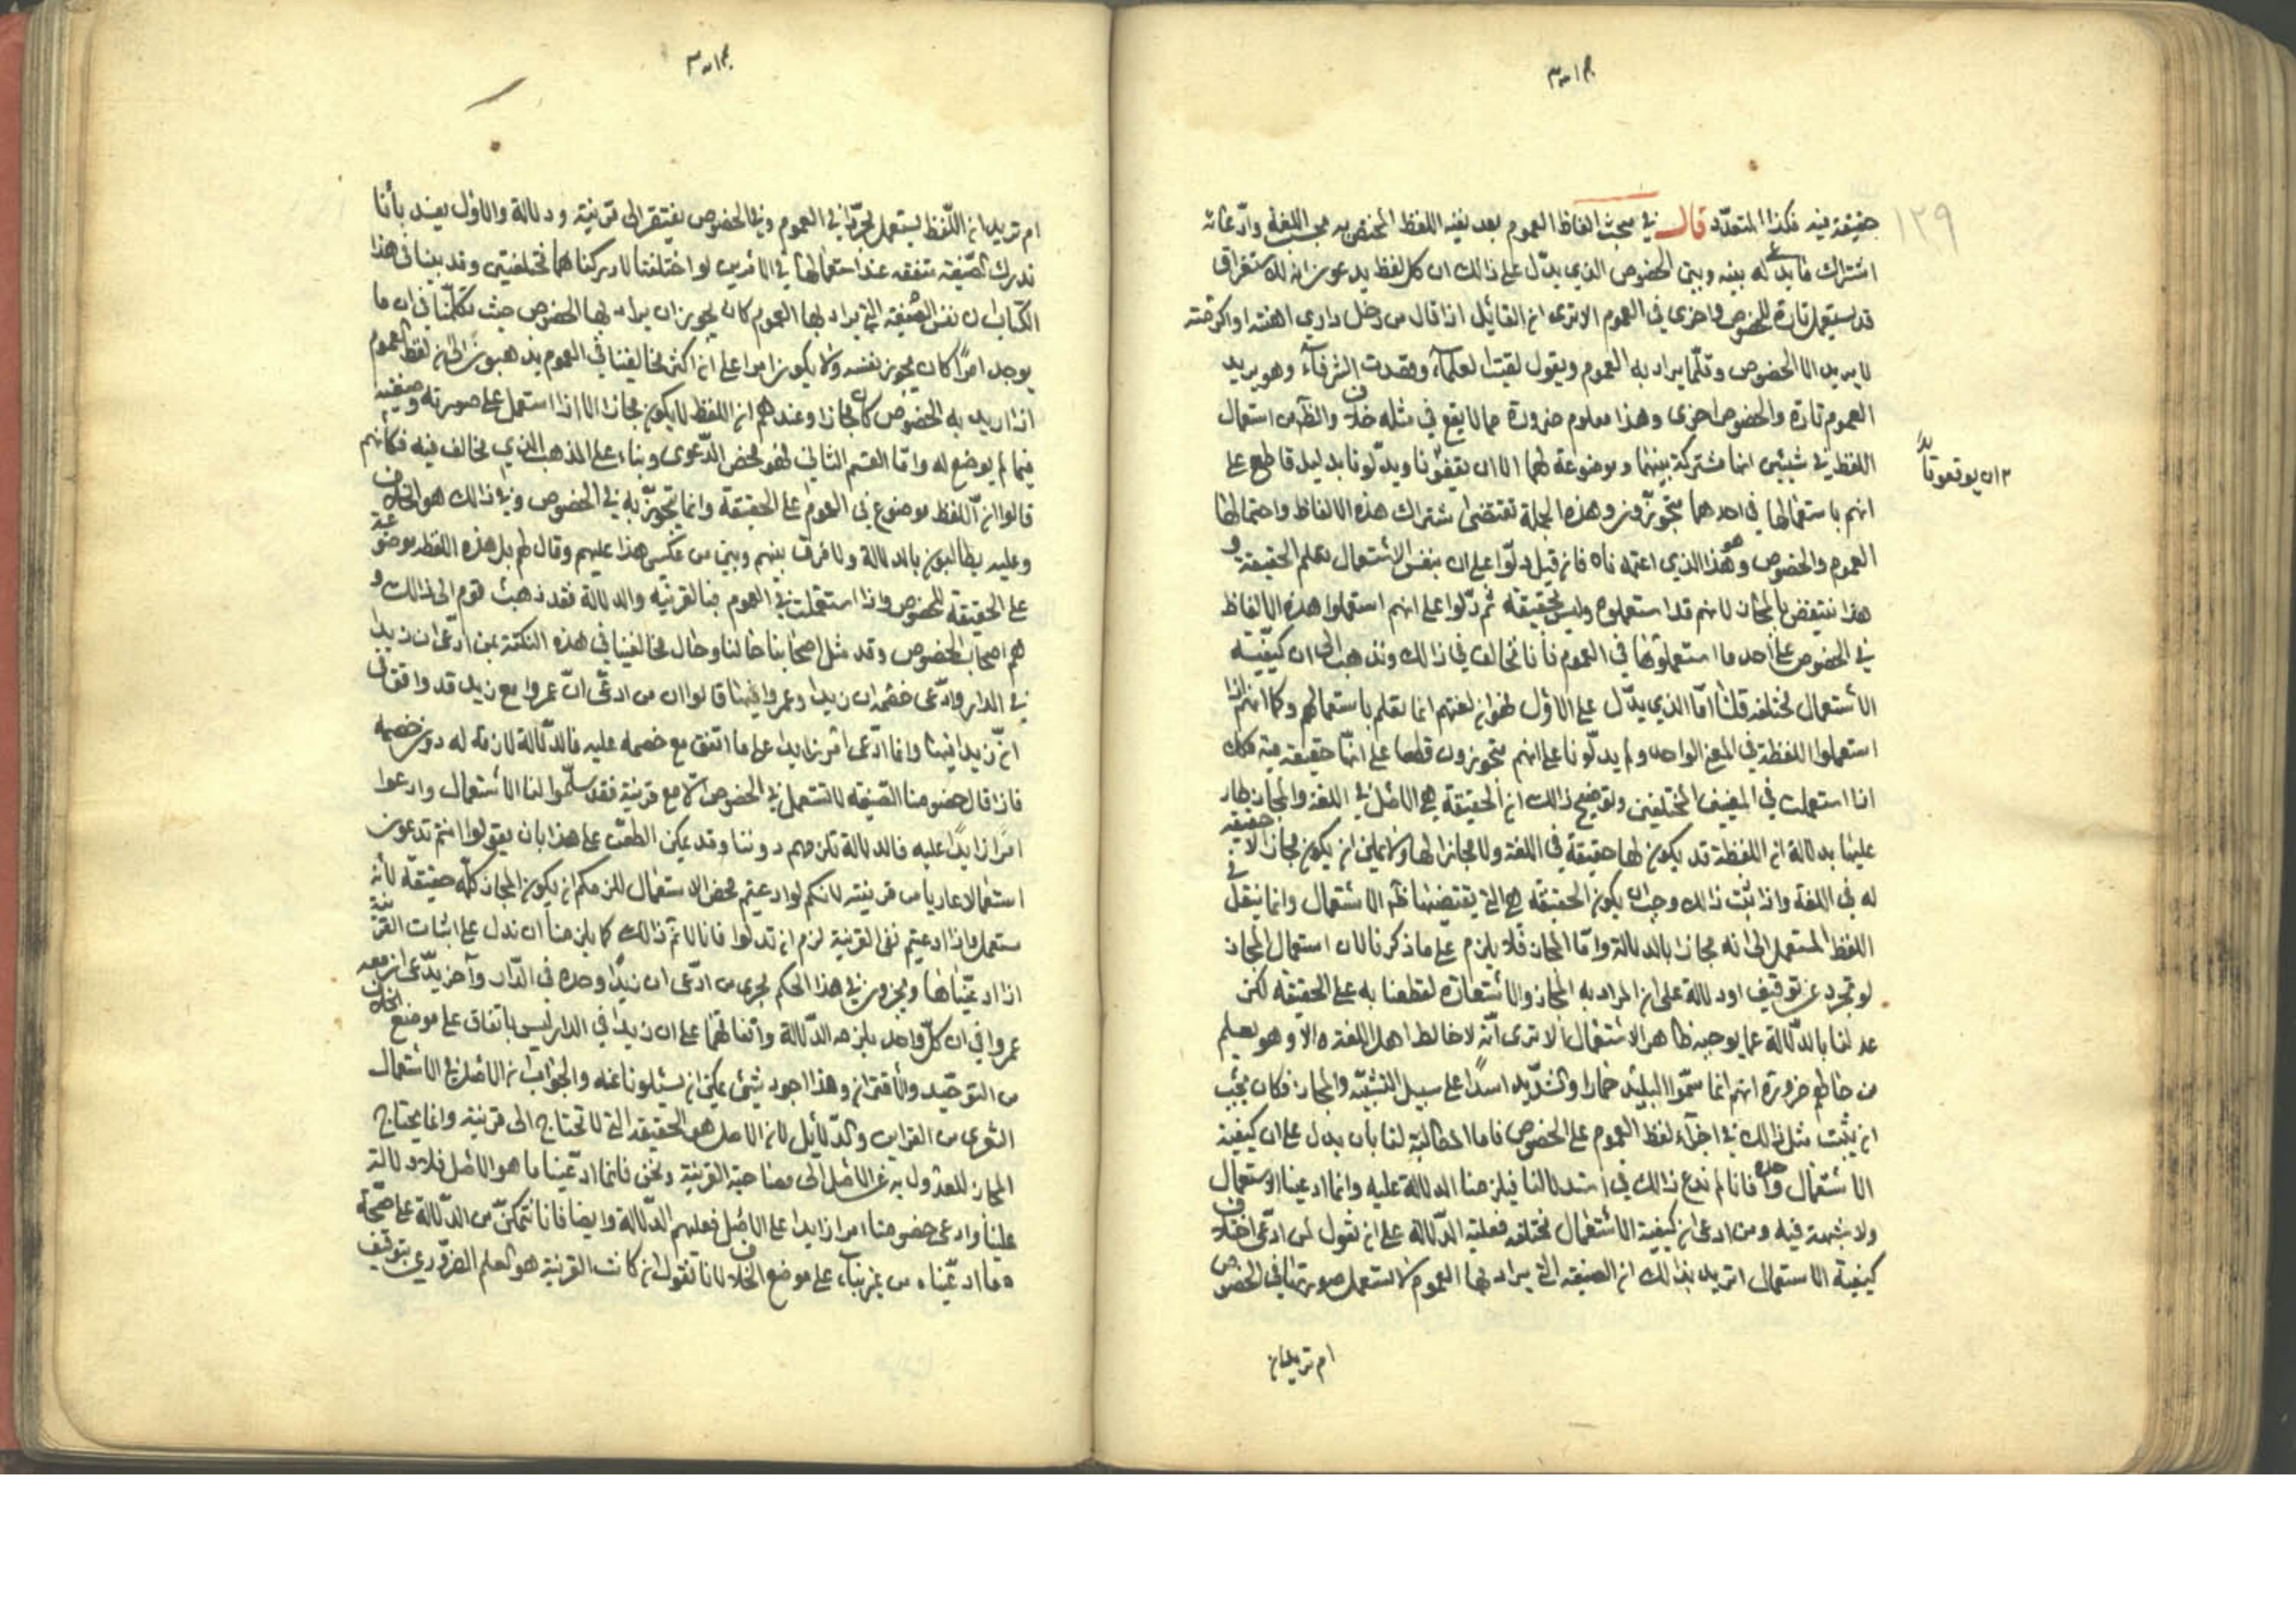 ١٢٩
حقيقة فيه فكذا المتعدّد قال في مبحث الفاظ العموم بعد نفيه اللفظ المختص به في اللغة وادّعائه
اشتراك ما يدعى له بينه وبين الخصوص الذي يدلّ على ذلك ان كل لفظ يدعون انه للاستغراق
قد يستعمل تارة للخصوص واخرى في العموم الا ترى ان القائل اذا قال من دخل داري اهنته او اكرمته
لا يريد الا الخصوص وقلّما يراد به العموم ويقول لقيت العلمآء وقصدت الشرفآء وهو يريد
العموم تارة والخصوص اخرى وهذا معلوم ضرورة مما لا يقع في مثله خلاف والظاهر من استعمال
اللفظة في شيئين انها مشتركة بينهما وموضوعة لهما الا ان يقفونا ويدلّونا بدليل قاطع على
٢ ان يوقفونا
انهم باستعمالها في احدهما متجوّزون وهذه الجملة تقتضى اشتراك هذه الالفاظ واحتمالها
العموم والخصوص وهذا هو الذي اعتمدناه فان قيل دلّوا على ان بنفس الاستعمال تعلم الحقيقة و
هذا ينتقض بالمجاز لانهم قد استعملوه وليس بحقيقة ثم دلّوا على انهم استعملوا هذه الالفاظ
في الخصوص على احد ما استعملوها في العموم فانا نخالف في ذلك ونذهب الى ان كيفيّة
الاستعمال مختلفة قلنا امّا الذي يدلّ على الاوّل فهو ان لغتهم انما تعلم باستعمالهم وكما انهم اذا
استعملوا اللفظة في المعنى الواحد ولم يدلّونا على انهم متجوزون قطعنا على انّها حقيقة فيه فكك
اذا استعملت في المعنيين المختلفين وتوضيح ذلك ان الحقيقة هي الاصل في اللغة والمجاز طار
عليها بدلالة ان اللفظة قد يكون لها حقيقة في اللغة ولا مجاز لها ولا يمكن ان يكون مجاز لا حقيقة
له في اللغة واذا ثبت ذلك وجب ان يكون الحقيقة هي التي يقتضيها ظاهر الاستعمال وانما ينتقل في
اللفظ المستعمل الى انه مجاز بالدلالة وامّا المجاز فلا يلزم على ما ذكرنا لان استعمال المجاز
لو تجرد عن توقيف او دلالة على ان المراد به المجاز والاستعارة لقطعنا به على الحقيقة لكن
عدلنا بالدّلالة عما يوجبه ظاهر الاستعمال الا ترى انّه لا خالط اهل اللغة الا وهو يعلم
من خاطره ضرورة انهم انما سمّوا البليد حمارا والشديد اسدًا على سبيل التشبيه والمجاز فكان يجب
ان يثبت مثل ذلك في اجرآء لفظ العموم على الخصوص فاما المطالبة لنا بان يدل على ان كيفية
الاستعمال واحدة فانا لم ندع ذلك في استدلالنا فيلزمنا الدلالة عليه وانما ادعينا الاستعمال
ولا شبهة فيه ومن ادعى ان كيفية الاستعمال مختلفة فعليه الدّلالة على ان نقول لمن ادّعى اختلاف
كيفية الاستعمال اتريد بذلك ان الصيغة التي يراد بها العموم لا تستعمل صورتها في الخصوص
ام تريد ان
ام تريد ان اللّفظ يستعمل مجرّدا في العموم وفي الخصوص يفتقر الى قرينة ودلالة والاوّل يفسد بأنا
ندرك الصّيغة متفقة عند استعمالها في الامرين لو اختلفتا لادركناهما مختلفتين وقد بيّنا في هذا
الكتاب ان نفس الصّيغة التي يراد بها العموم كان يجوز ان يراد بها الخصوص حيث تكلّمنا في ان ما
يوجد امرًا كان يجوز بنفسه ولا يكون امرا على ان اكثر مخالفينا في العموم يذهبون الى ان لفظ العموم
اذا اريد به الخصوص كان مجازا وعندهم ان اللفظ لا يكون مجازا الا اذا استعمل على صورته وصيغته
فيما لم يوضع له وامّا القسم الثاني فهو محض الدّعوى وبناء على المذهب الذي نخالف فيه فكأنهم
قالوا انّ اللفظ موضوع في العموم على الحقيقة وانما تجوّز به في الخصوص وفي ذلك هو الخلاف
وعليه يطالبون بالدلالة ولا فرق بينهم وبين من عكس هذا عليهم وقال لهم بل هذه اللفظة موضوعة
على الحقيقة للخصوص واذا استعملت في العموم فبالقرينة والدلالة فقد ذهبت قوم الى ذلك و
هم اصحاب الخصوص وقد مثل اصحابنا حالنا وحال مخالفينا في هذه النكتة بمن ادّعى ان زيدا
في الدار وادّعى خصمه ان زيدا وعمروا فيها قالوا ان من ادعّى انّ عمروا مع زيد قد وافق في
انّ زيدا فيها وانما ادّعى امرا زايدا على ما اتفق مع خصمه عليه فالدّلالة لازمة له دون خصمه
فاذا قال خصومنا الصّيغة لا تستعمل في الخصوص الّا مع قرينة فقد سلّموا لنا الاستعمال وادعوا
امرًا زايدًا عليه فالدلالة تلزمهم دوننا وقد يمكن الطعن على هذا بان يقولوا انتم تدعون
استعمالا عاريا من قرينة لانكم لو ادعيتم محض الاستعمال للزمكم ان يكون المجاز كلّه حقيقة لأنه
مستعمل واذا ادعيتم نفى القرينة لزم ان تدلّوا فانا لا نتم ذلك كما يلزمنا ان ندل على اثبات القرينة
اذا ادعيناها ويجرون في هذا الحكم مجرى من ادّعى ان زيدًا وحده في الدّار وآخر يدّعى ان معه
عمروا في ان كلّ واحد يلزمه الدّلالة واتفاقهما على ان زيدا في الدار ليس باتفاق على موضع الخلاف
من التوحّيد والاقتران وهذا اجود شئ يمكن ان يسئلونا عنه والجواب ان الاصل في الاستعمال
التعرى من القراين والدّلائل لان الاصل هو الحقيقة التي لا تحتاج الى قرينة وانما يحتاج
المجاز للعدول به عن الاصل الى مصاحبة القرينة ونحن فانما ادّعينا ما هو الاصل فلا دلالة
علينا وادعى خصومنا امرا زايدا على الاصل فعليهم الدّلالة وايضا فانا نتمكّن من الدّلالة على صحّة
ما ادعّيناه من غير بناء على موضع الخلاف لانا نقول ان كانت القرينة هو العلم الضرّوري بتوقيف